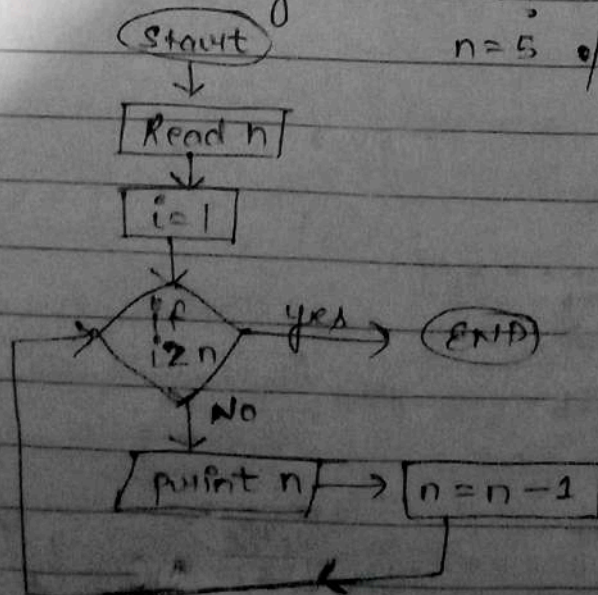 Start
n = 5
Read n
i = 1
If
i > n
yes
END
No
print n
n = n - 1